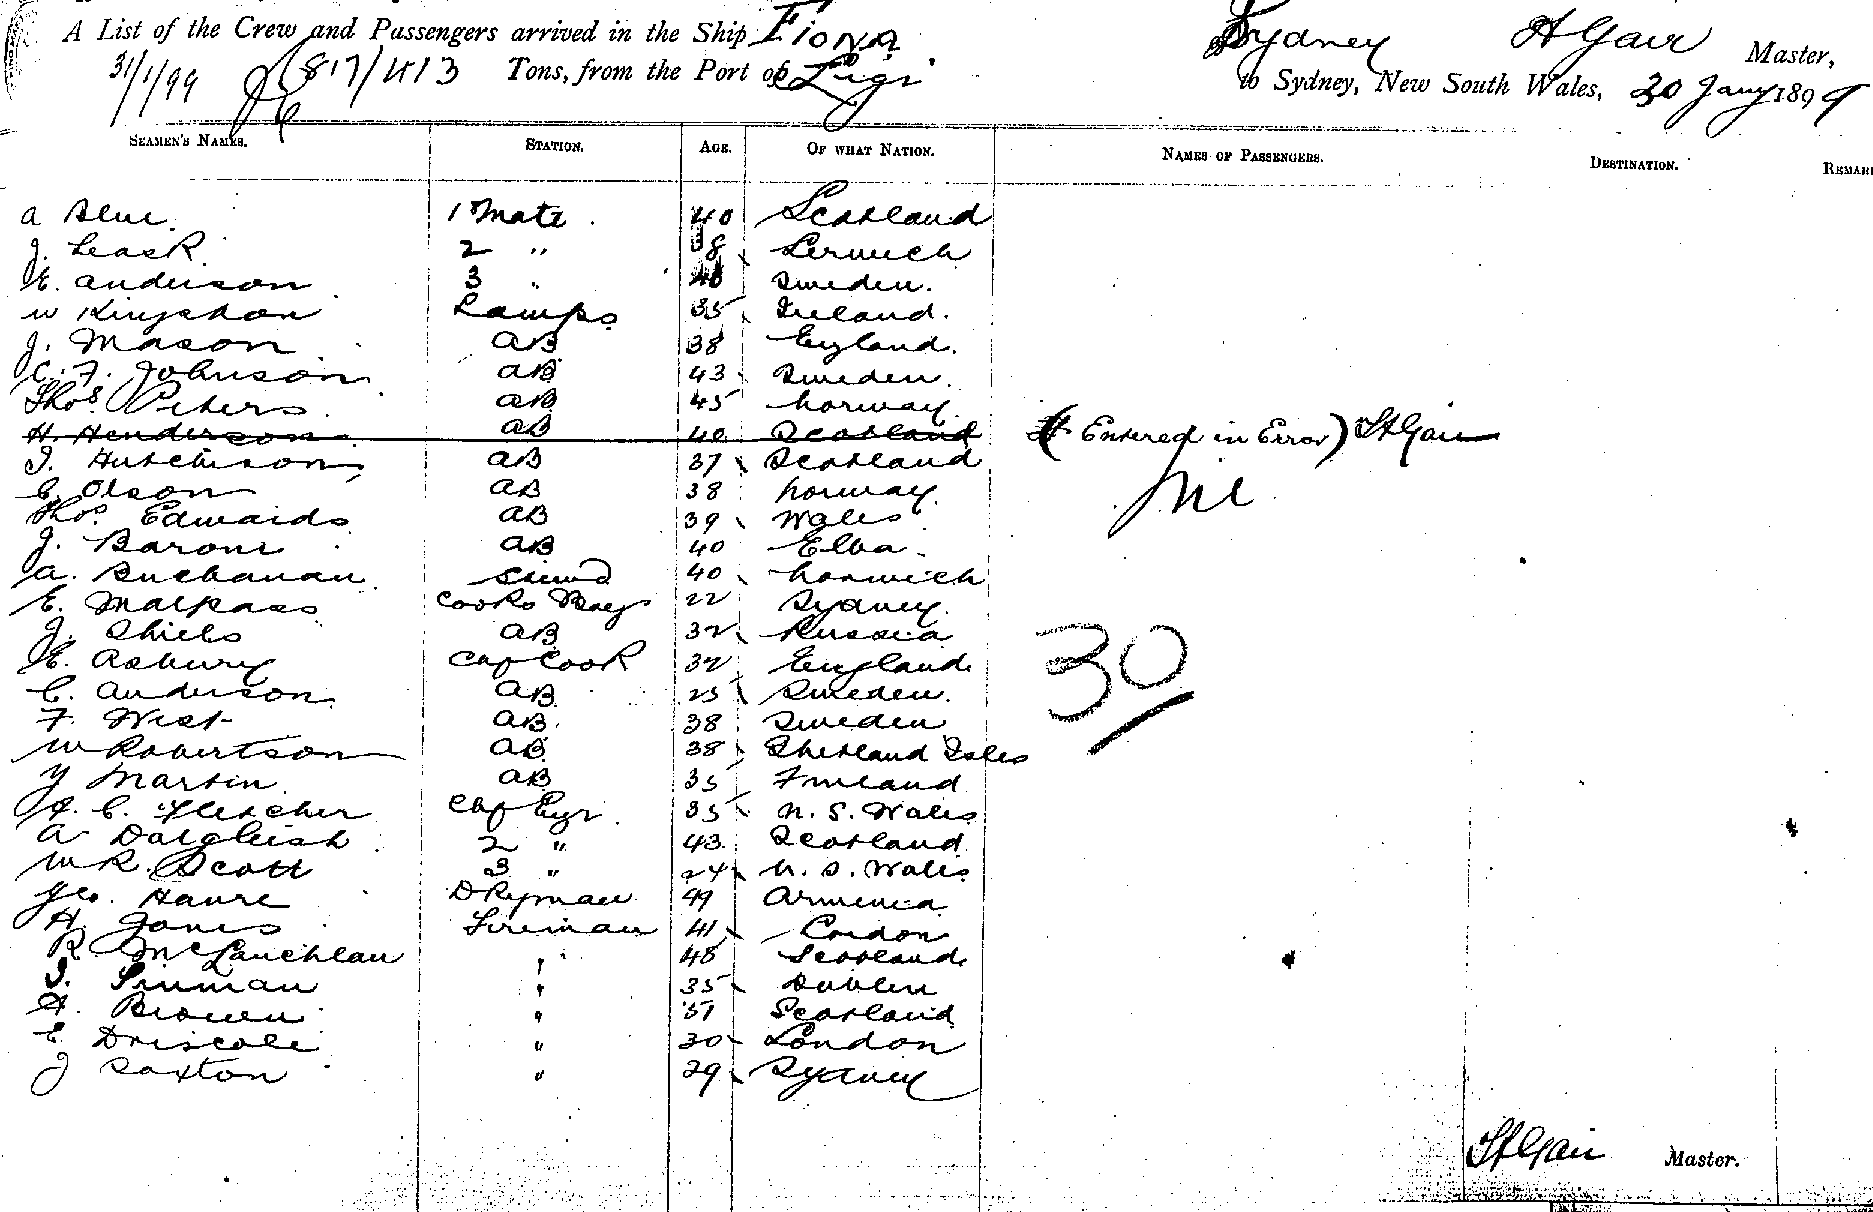 A List of the Crew and Passengers arrived in the Ship Fiona Sydney H Gair Master,
31/1/99 817/413 Tons, from the Port of Fiji to Sydney, New South Wales, 30 Jany 1899
SEAMEN'S NAMES. STATION. AGE. OF WHAT NATION. NAMES OF PASSENGERS. DESTINATION. REMAR
A Blue 1 Mate 40 Scotland
J. Leask 2 " 38 Lerwick
E. Anderson 3 " Sweden.
W Kingston Lamps 35 Ireland.
J. Mason AB 38 England.
C. F. Johnson AB 43 Sweden.
Thos. Peters AB 45 Norway.
H. Henderson AB 40 Scotland (Entered in Error) H Gair
J. Hutchison AB 37 Scotland
C. Olson AB 38 Norway. Nil
Thos. Edwards AB 39 Wales
J. Baroni AB 40 Elba.
A. Buchanan Stewd 40 Norwich
E. Malpass Cooks Boy 22 Sydney.
J. Shiels AB 32 Russia
E. Asbury Chf Cook 32 England 30
C. Anderson AB 25 Sweden.
F. West AB. 38 Sweden
W Robertson AB 38 Shetland Isles
Y Martin AB 35 Finland
A. C. Fletcher Chf Engr. 35 N. S. Wales
A Dalgleish 2 " 43 Scotland
W R. Scott 3 " 24 N. S. Wales
Geo. Dkyman 49 Armenia
H. Jones Fireman 41 London
R McLauchlan " 48 Scotland
" 35 Dublin
A. Brown " 37 Scotland
C Driscole " 30 London
J Saxton " 29 Sydney
H Gair Master.